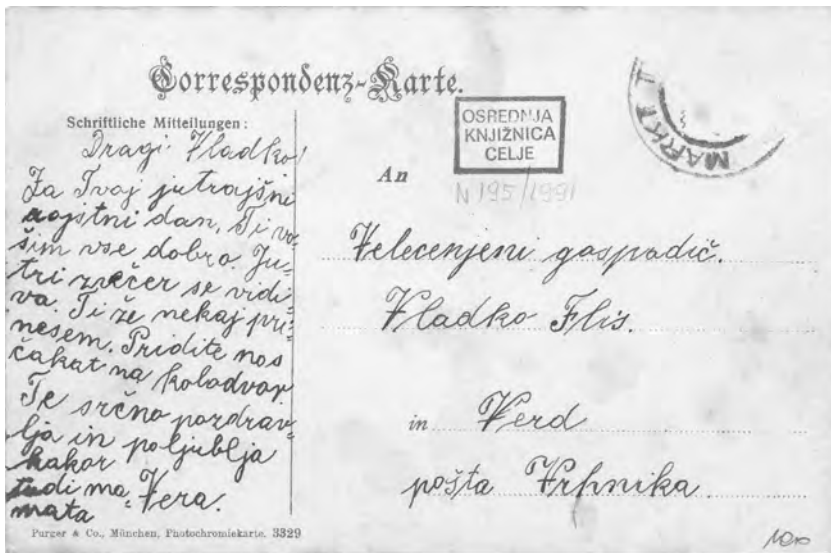 Correspondenz-Karte.
Schriftliche Mitteilungen:
Dragi Vladko!
Za Tvoj jutrajšni
rojstni dan, Ti vo-
šim vse dobro. Ju-
tri zvečer se vidi-
va. Ti že nekaj pri-
nesem. Pridite nas
čakat na kolodvor.
Te srčno pozdrav-
lja in poljublja
kakor
tudi ma-
mata Vera.
Purger & Co., München, Photochromiekarte. 3329
OSREDNJA
KNJIŽNICA
CELJE
An
N 195/1991
MARKT T
Velecenjeni gospodič.
Vladko Flis.
in Verd
pošta Vrhnika